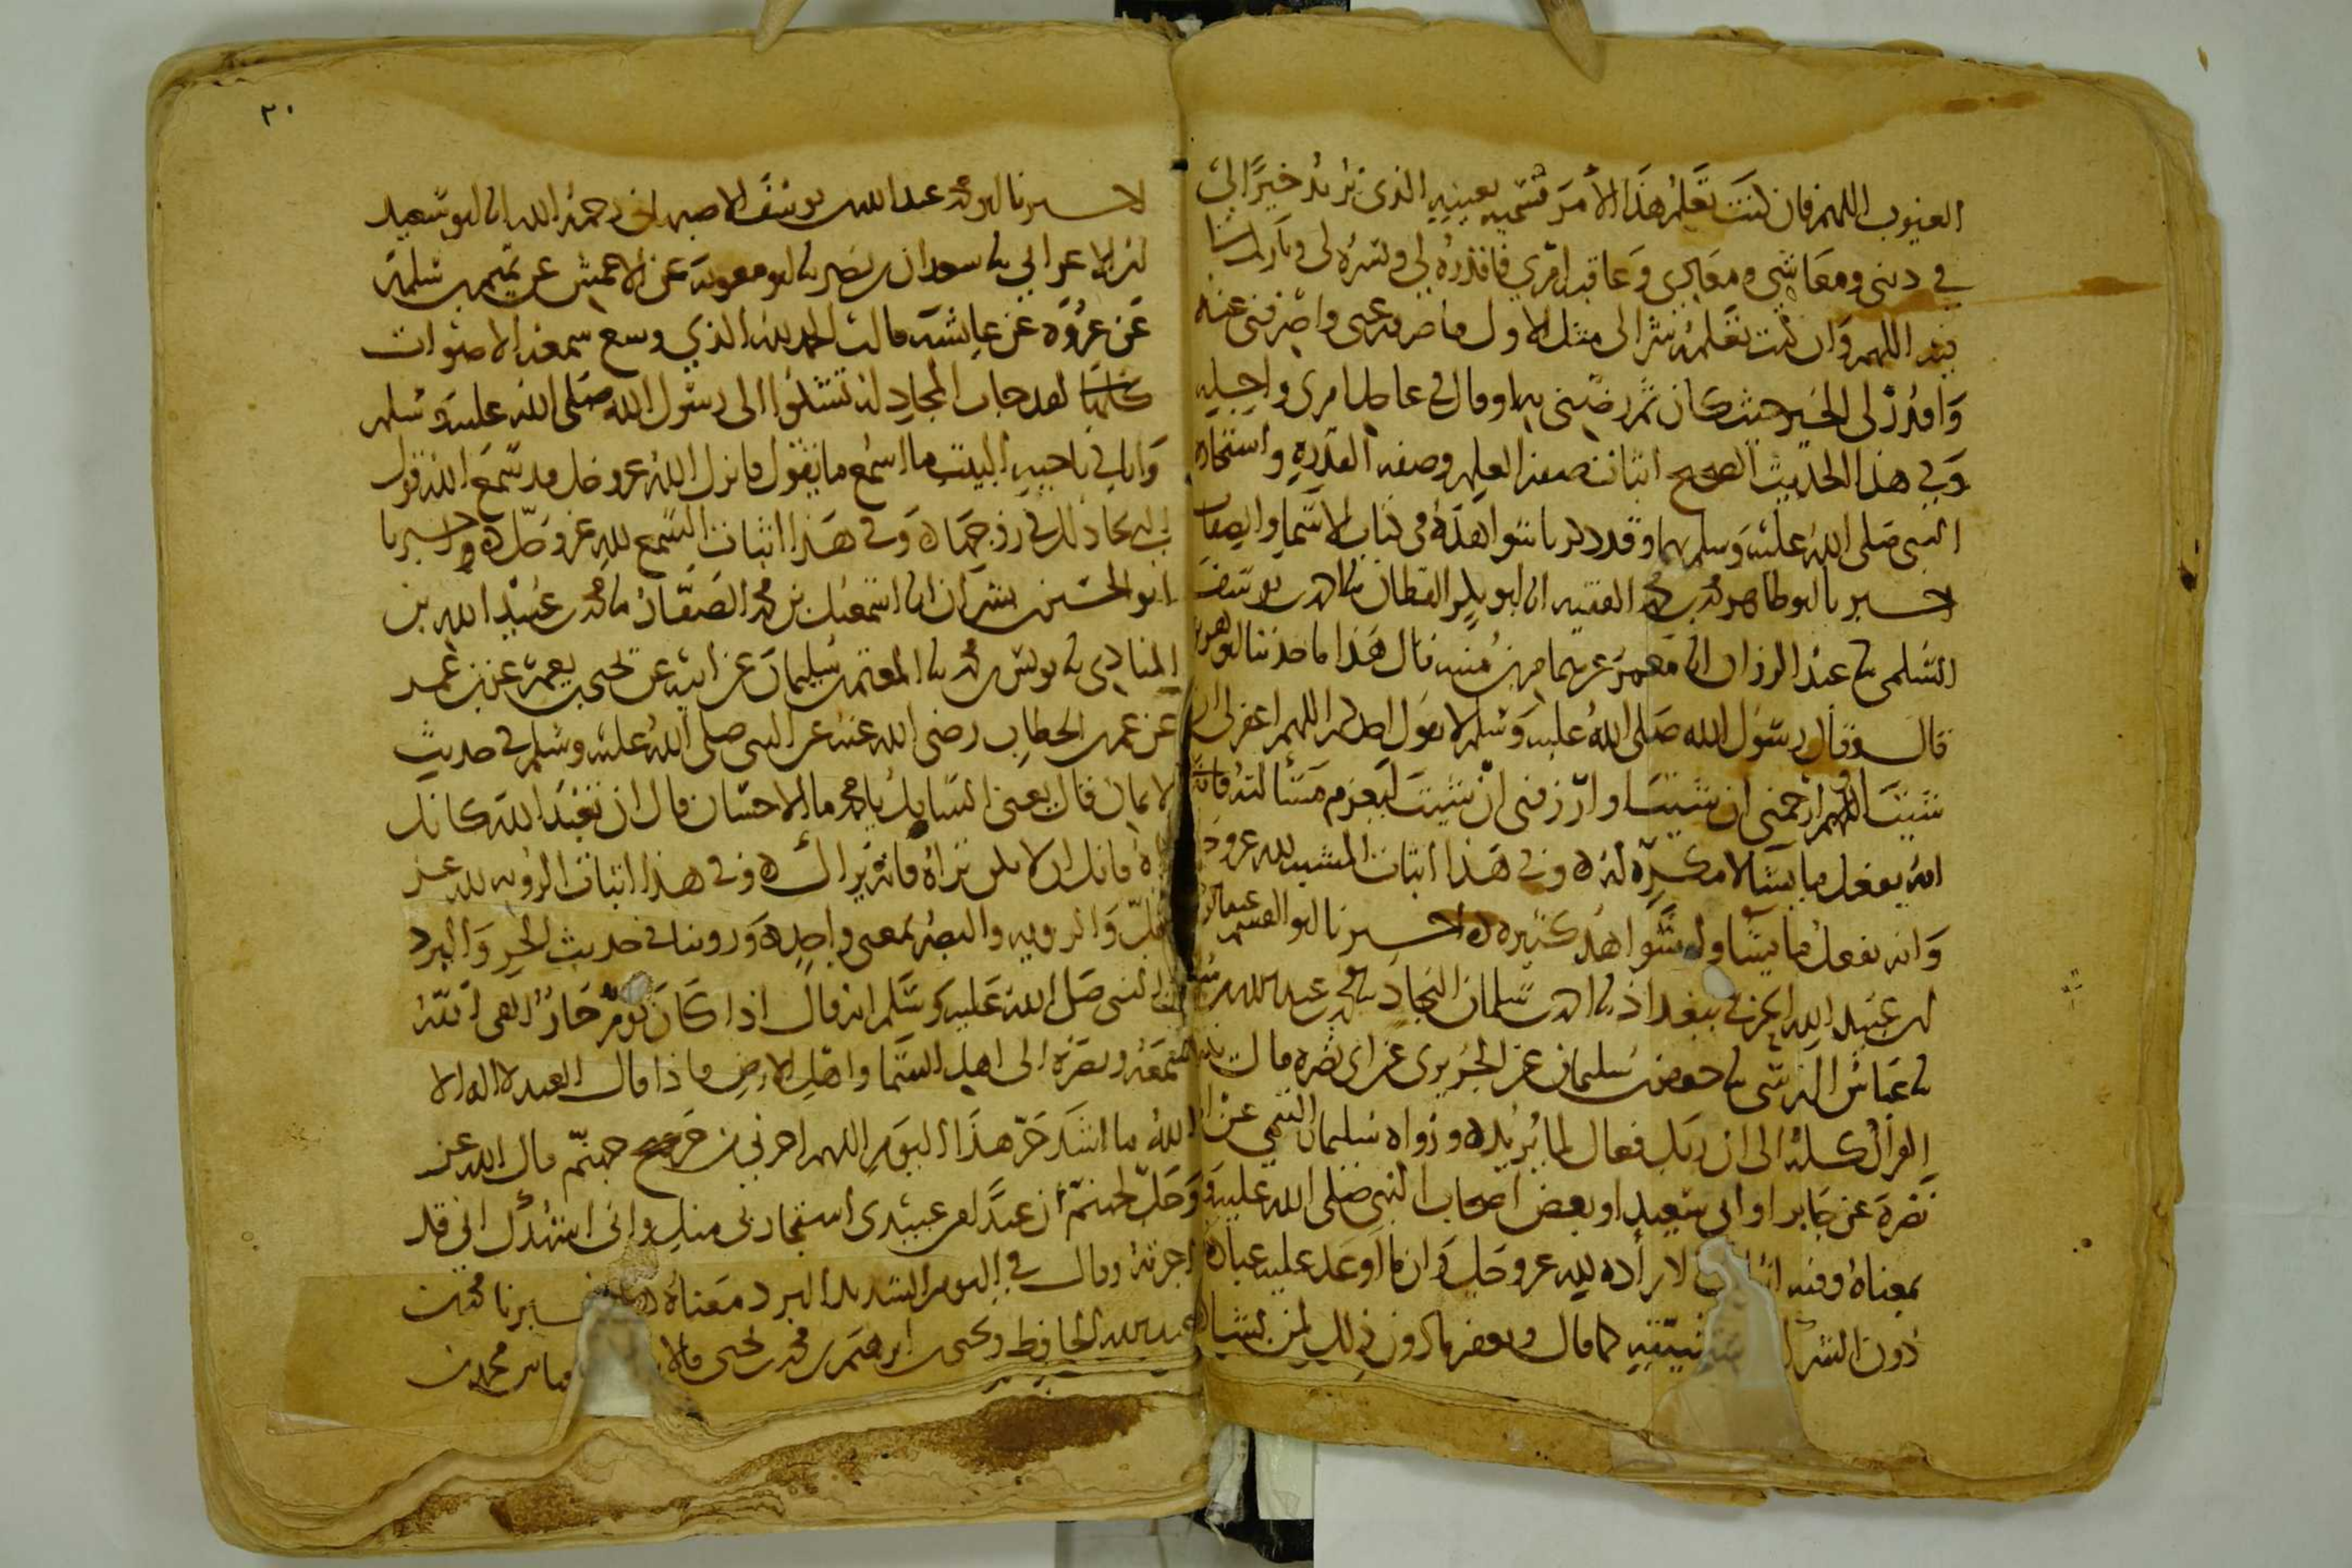 الغيوب اللهم فان كنت تعلم هذا الأمر تسميه بعينه الذي تريد خيرا لي
في ديني ومعاشي ومعادي وعاقبة امري فاقدره لي ويسره لي وبارك لنا
فيه اللهم وان كنت تعلمه شرا لي مثل الاول فاصرفه عني واصرفني عنه
واقدر لي الخير حيث كان ثم رضني به او قال في عاجل امري واجله
وفي هذا الحديث الصحيح اثبات صفة العلم وصفة القدرة واستخارة
النبي صلى الله عليه وسلم بهما وقد ذكرنا شواهده في كتاب الاسما والصفات
اخبرنا ابو طاهر محمد بن محمد الفقيه انا ابو بكر القطان نا احمد بن يوسف
السلمي نا عبد الرزاق انا معمر عن همام بن منبه قال هذا ما حدثنا ابو هريرة
قال وقال رسول الله صلى الله عليه وسلم لا يقول احدكم اللهم اغفر لي ان
شيت اللهم ارحمني ان شيت او ارزقني ان شيت ليعزم مسألته فانه
انه يفعل ما يشا لا مكره له ه وفي هذا اثبات المشيه لله عز وجل
وانه يفعل ما يشا وله شواهد كثيره ه اخبرنا ابو القسم عبد الرحمن
بن عبيد الله الحرفي ببغداذ نا احمد بن سلمان النجاد نا محمد بن عبد الله بن سليمان
نا عباس النرسي نا جعفر بن سليمان عن الجريري عن ابي نضره قال ينتهي
القرآن كله الى ان ربك فعال لما يريد ه ورواه سليمان التيمي عن ابي
نضرة عن جابر او ابي سعيد او بعض اصحاب النبي صلى الله عليه و
بمعناه وفيه اثبات الارادة لله عز وجل وان ما اوعد عليه عباده
دون الشرك مشيته كما قال ويغفر ما دون ذلك لمن يشا
٢٠
اخبرنا ابو محمد عبد الله بن يوسف الاصبهاني رحمه الله انا ابو سعيد
بن الاعرابي نا سعدان بن نصر نا ابو معوية عن الاعمش عن تميم بن سلمة
عن عروة عن عايشة قالت الحمد لله الذي وسع سمعه الاصوات
كلها لقد جات المجادلة تشكوا الى رسول الله صلى الله عليه وسلم
وانا في ناحية البيت ما اسمع ما تقول فانزل الله عز وجل قد سمع الله قول
التي تجادلك في زوجها ه وفي هذا اثبات السمع لله عز وجل ه واخبرنا
ابو الحسين بن بشران انا اسمعيل بن محمد الصفار نا محمد بن عبيد الله بن
المنادي نا يونس بن محمد نا المعتمر بن سليمان عن ابيه عن يحيى بن يعمر عن بن عمر
عن عمر بن الخطاب رضي الله عنه عن النبي صلى الله عليه وسلم في حديث
الايمان قال يعني السايل يا محمد ما الاحسان قال ان تعبد الله كانك
تراه فانك ان لا تكن تراه فانه يراك ه وفي هذا اثبات الرؤيه لله عز
وجل والرويه والبصر بمعنى واحد ه وروينا في حديث الحر والبرد
عن النبي صلى الله عليه وسلم انه قال اذا كان يوم حار القى الله
سمعه وبصره الى اهل السما واهل الارض فاذا قال العبد لا اله الا
الله ما اشد حر هذا اليوم اللهم اجرني من حر جهنم قال الله عز
وجل لجهنم ان عبدا من عبيدي استجارني منك واني اشهدك اني قد
اجرته وقال في اليوم الشديد البرد معناه ه اخبرنا محمد بن
عبد الله الحافظ ويحيى بن ابرهيم بن محمد بن يحيى قالا